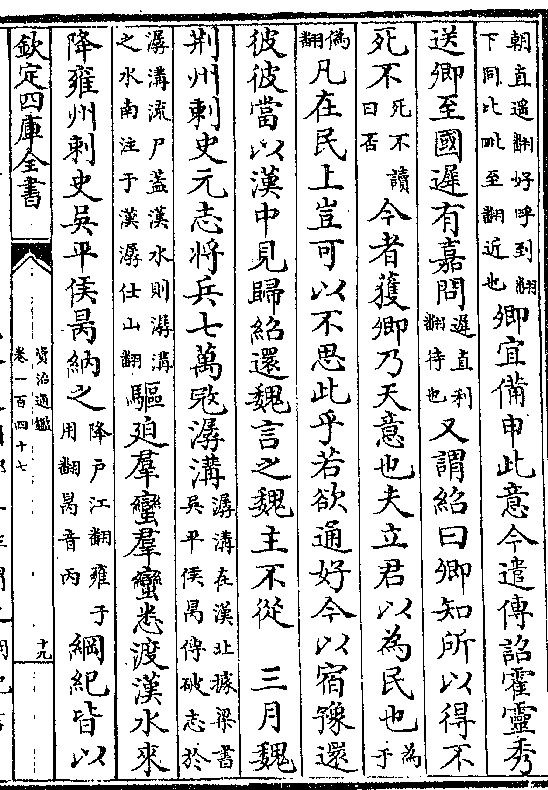 朝直遥翻好呼到翻下同比毗至翻近也卿宜備申此意今遣傳詔霍靈秀
送卿至國遲有嘉問遲直利翻待也又謂紹曰卿知所以得不
死不死不讀曰否今者獲卿乃天意也夫立君以為民也為于
偽翻凡在民上豈可以不思此乎若欲通好今以宿豫還
彼彼當以漢中見歸紹還魏言之魏主不從　三月魏
荆州刺史元志將兵七萬宼潺溝潺溝在漢北據梁書吳平侯昺傳破志於
潺溝流尸蓋漢水則潺溝之水南注于漢潺仕山翻驅迫羣蠻羣蠻悉渡漢水來
降雍州刺史吳平侯昺納之降戶江翻雍于用翻昺音丙綱紀皆以
欽定四庫全書
資治通鑑
卷一百四十七
十九